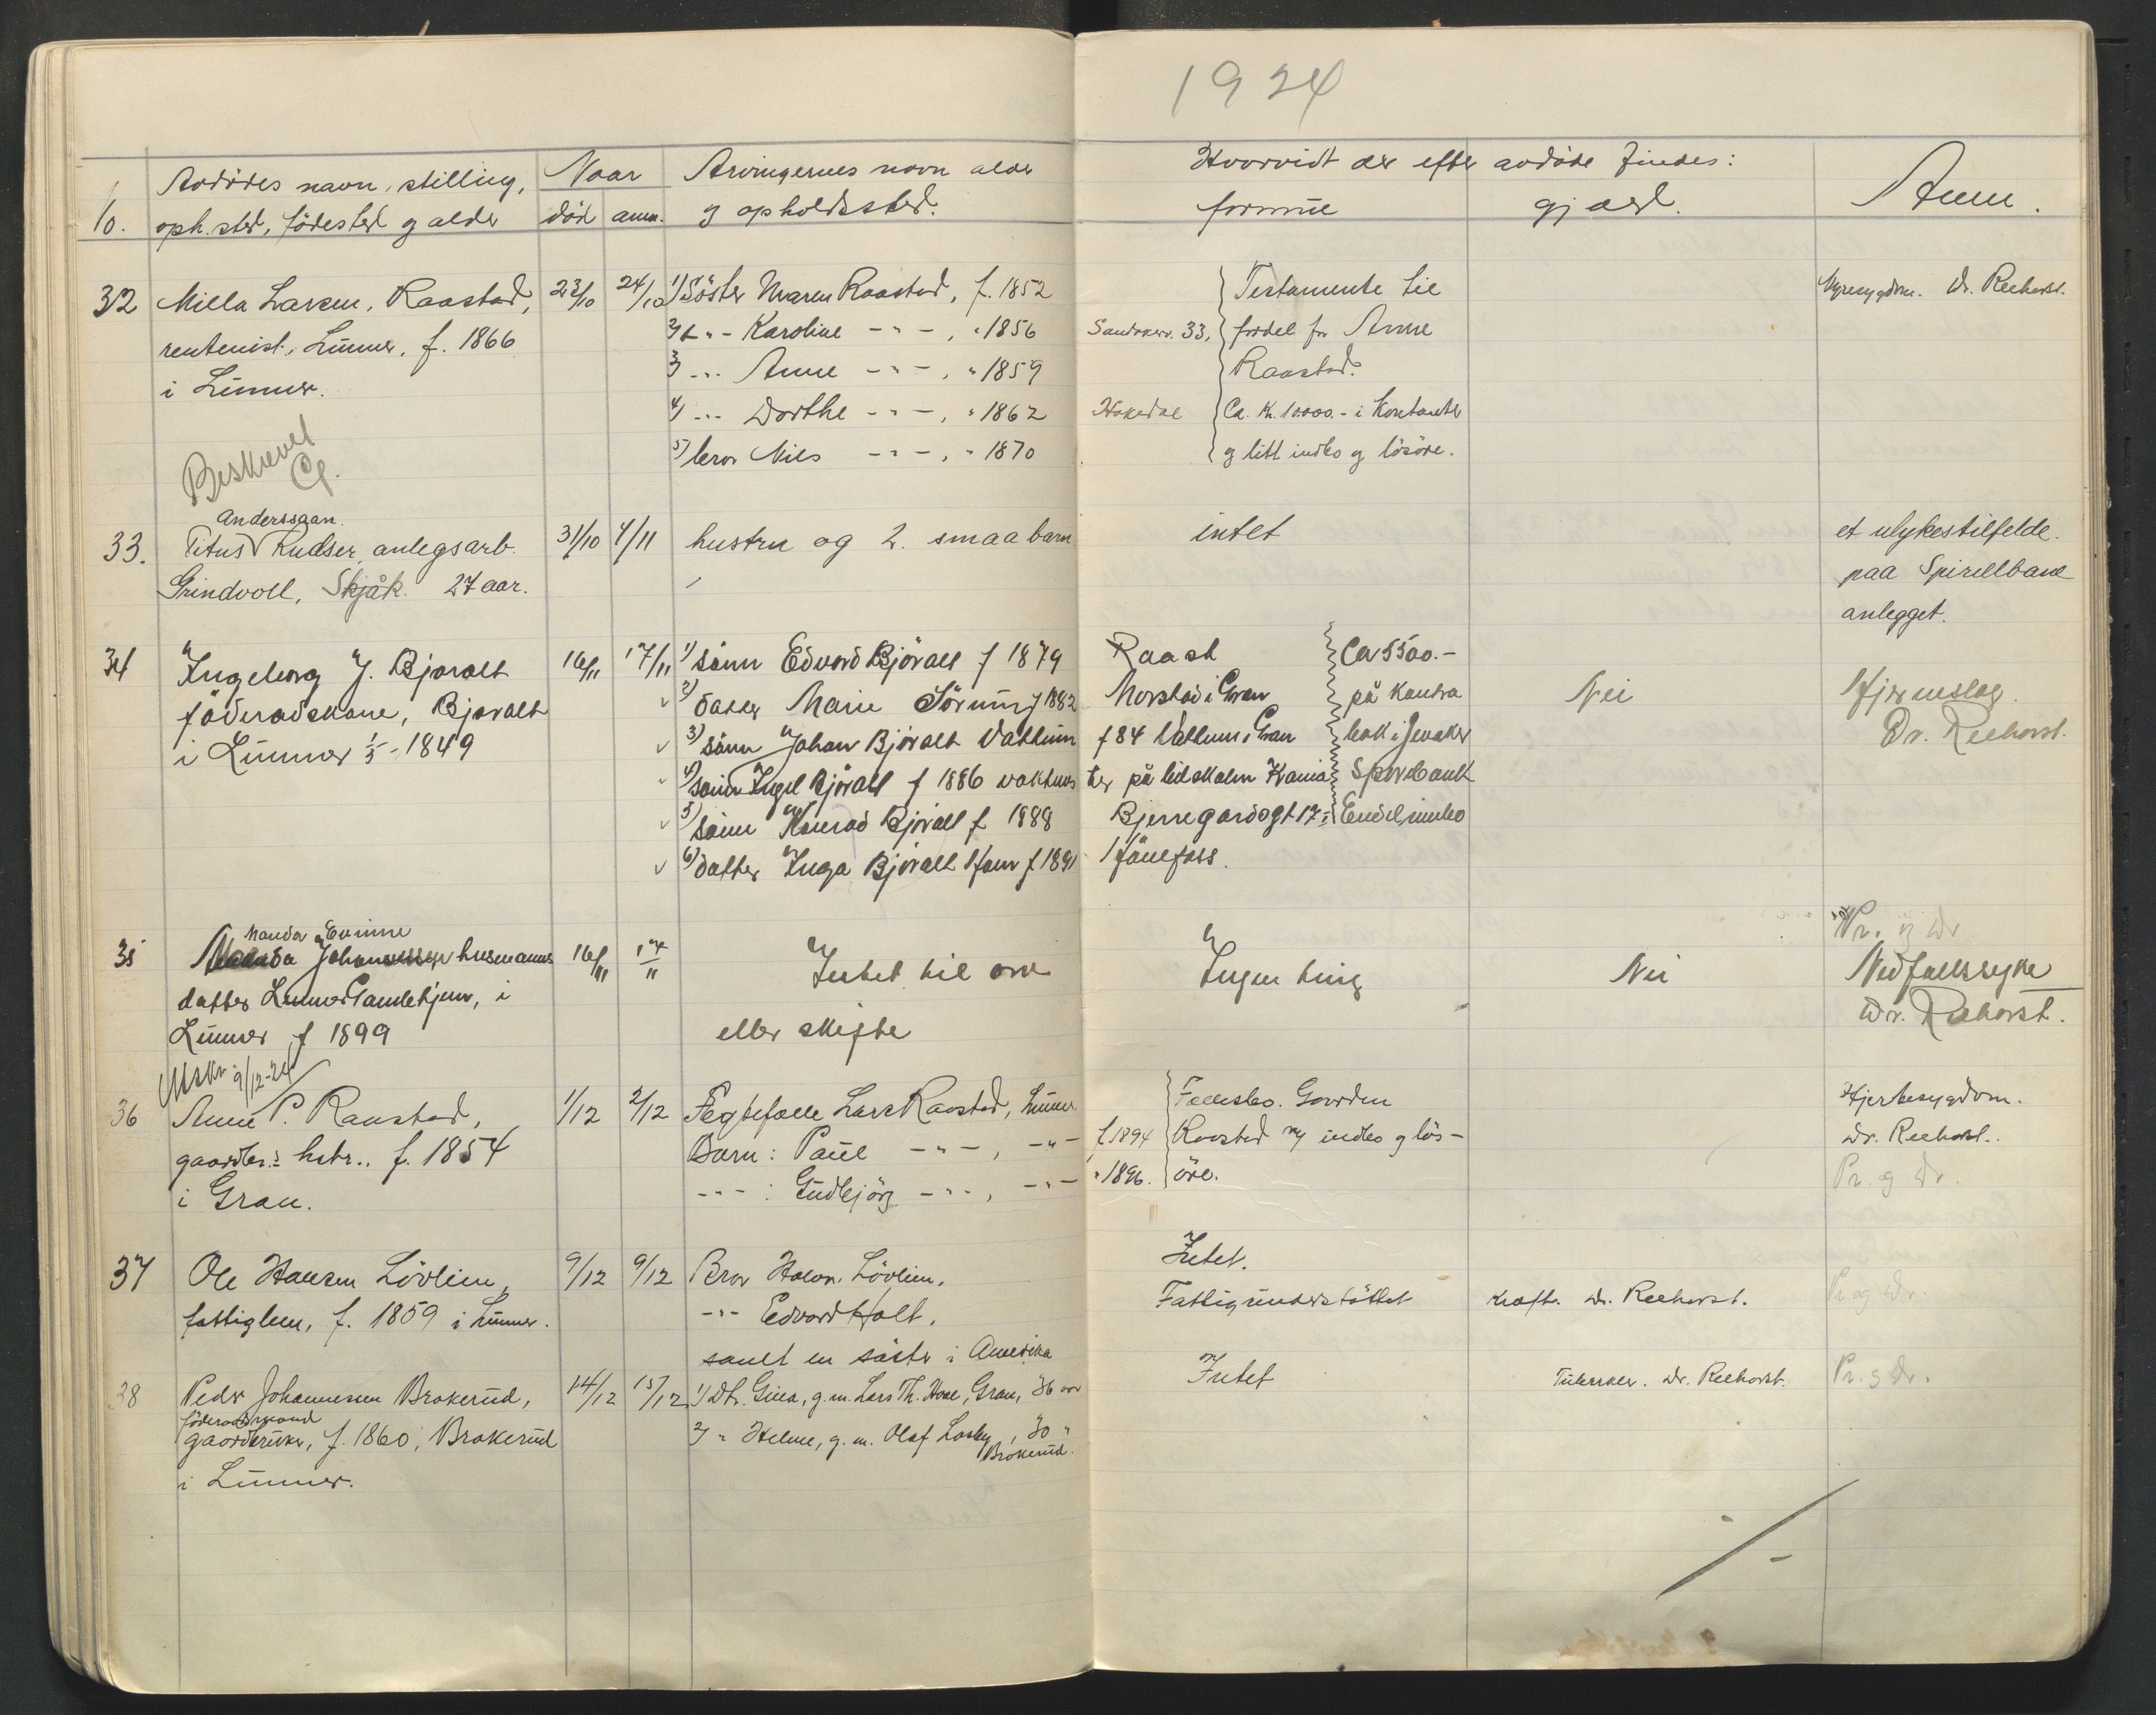 1924
Avdödes navn, stilling, Naar Arvingernes navn alder Hvorvidt der efter avdöde findes:
oph. sted, födested og alder död anm. og opholdssted. formue gjæld. Anm.
32 Milla Larsen, Raastad, 23/10 24/10 1) Söster Maren Raastad, f. 1852 Testamente til Nyresygdom. Dr. Reehorst.
rentenist, Lunner, f. 1866 2) -"- Karoline -"-, " 1856 33, fordel for Anne
i Lunner. 3) -"- Anne -"-, " 1859 Raastad.
4) -"- Dorthe -"-, " 1862 Hakedal Ca. Kr. 10000.- i kontanter
Beskrevet 5) bror Nils -"-, " 1870 og litt indbo og lösöre.
Anderssøan
33. Titus Rudser anlegsarb. 31/10 4/11 hustru og 2. smaa barn intet et ulykestilfelde.
Grindvoll, Skjåk. 27 aar. paa Spirillbane
anlegget.
34 Ingeborg J. Bjøralt 16/11 17/11 1) sönn Edvard Björalt f 1879 Raast Ca 5500.-
föderådskone, Bjøralt 2) datter Marie Sörum f 1882 Morstad i Gran på kontra Nei Hjerneslag.
i Lunner 1/5-1849 3) sönn Johan Björalt Vattum f 84 Vattum i Gran bok i Jevaker Dr. Reehorst.
4) sönn Ingel Björalt f 1886 vaktmes ter på Kania Sparebank
5) sönn Konrad Björalt f 1888 Bjerregardsgt 17 Endel innbo
6) datter Inga Björalt Hönefoss.
Manda Evinne Pr. og Dr
35 Johannessen husmanns 16/11 17/11 Intet til arv Ingen ting Nei Nedfallssyke
datter Lunner Gamlehjem, i eller skifte Dr. Reehorst.
Lunner f 1899
9/12-24
36 Anne P. Raastad, 1/12 2/12 Ægtefælle Lars Raastad, Lunner Fællesbo. Gaarden Hjertesygdom.
gaardbr.s hstr., f. 1854 Barn: Paul -"-, -"- f. 1894 Raastad og indbo og lös- Dr. Reehorst.
i Gran. -"-: Gudbjörg -"-, -"- " 1896. öre. Pr. og Dr.
37 Ole Hansen Lövlien, 9/12 9/12 Bror Halvor Lövlien, Intet.
fattiglem, f. 1859 i Lunner. -"- Edvard Holt, Fattigunderstöttet kræft. Dr. Reehorst. Pr og Dr.
samt en söster i Amerika
38 Peder Johannesen Brakerud, 14/12 15/12 1) Dtr. Gina, g.m. Lars Th. Hval, Gran, 36 aar Intet Tuberkler. Dr. Reehorst. Pr. og Dr.
föderaadsmand
gaardbruker, f. 1860, Brakerud 2) " Helene, g.m. Olaf Lasby, 30 "
Brakerud.
i Lunner.